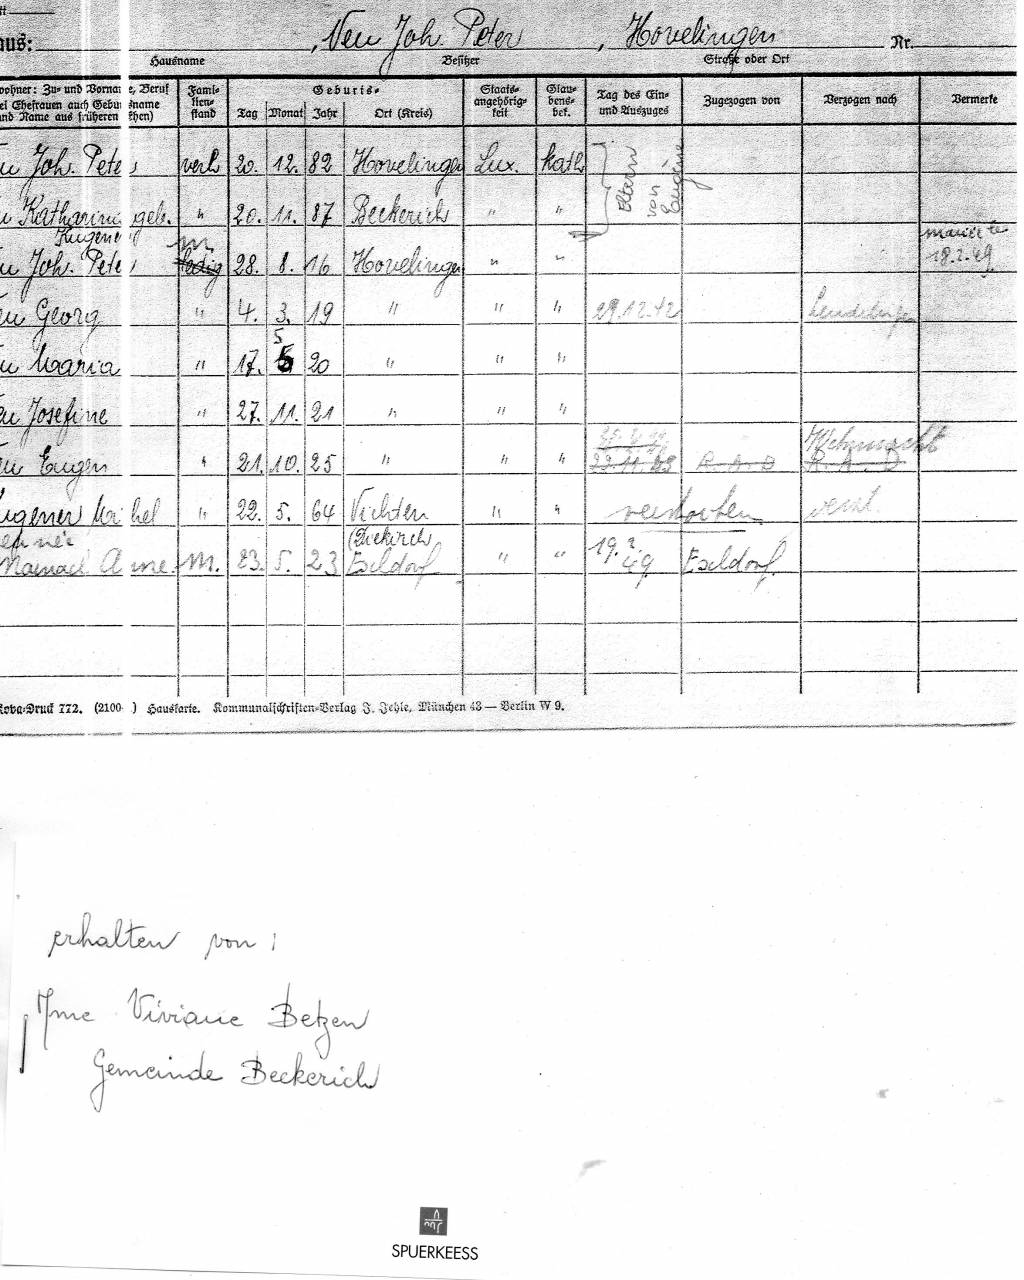 aus: Neu Joh. Peter, Hovelingen Nr.
Hausname Besitzer Straße oder Ort
wohner: Zu- und Vorname, Beruf
ei Ehefrauen auch Geburtsname
und Name aus früheren Ehen)
Fami-
lien-
stand
Geburts-
Tag Monat Jahr Ort (Kreis)
Staats-
angehörig-
keit
Glau-
bens-
bek.
Tag des Ein-
und Auszuges
Zugezogen von
Verzogen nach
Vermerke
eu Joh. Peter verh 20. 12. 82 Hovelingen Lux. kath
Eltern
von
Eugène
eu Katharina geb. " 20. 11. 87 Beckerich " "
Kugener
m
eu Joh. Peter ledig 28. 8. 16 Hovelingen " "
18.2.49
eu Georg " 4. 3. 19 " " " 29.12.42
5
eu Maria " 17. 20 " " "
eu Josefine " 27. 11. 21 " " "
Wehrmacht
eu Eugen " 21. 10. 25 " " " 22.11.43 R.A.D R.A.D
ugener Michel " 22. 5. 64 Vichten " " verstorben verst.
(Diekirch
Anne M. 23. 5. 23 Eseldorf " " 19.2.49 Eseldorf
Kova-Druck 772. (2100 ) Hauskarte. Kommunalschriften-Verlag J. Jehle, München 43 — Berlin W 9.
erhalten von :
Mme Viviane Betzen
Gemeinde Beckerich
SPUERKEESS